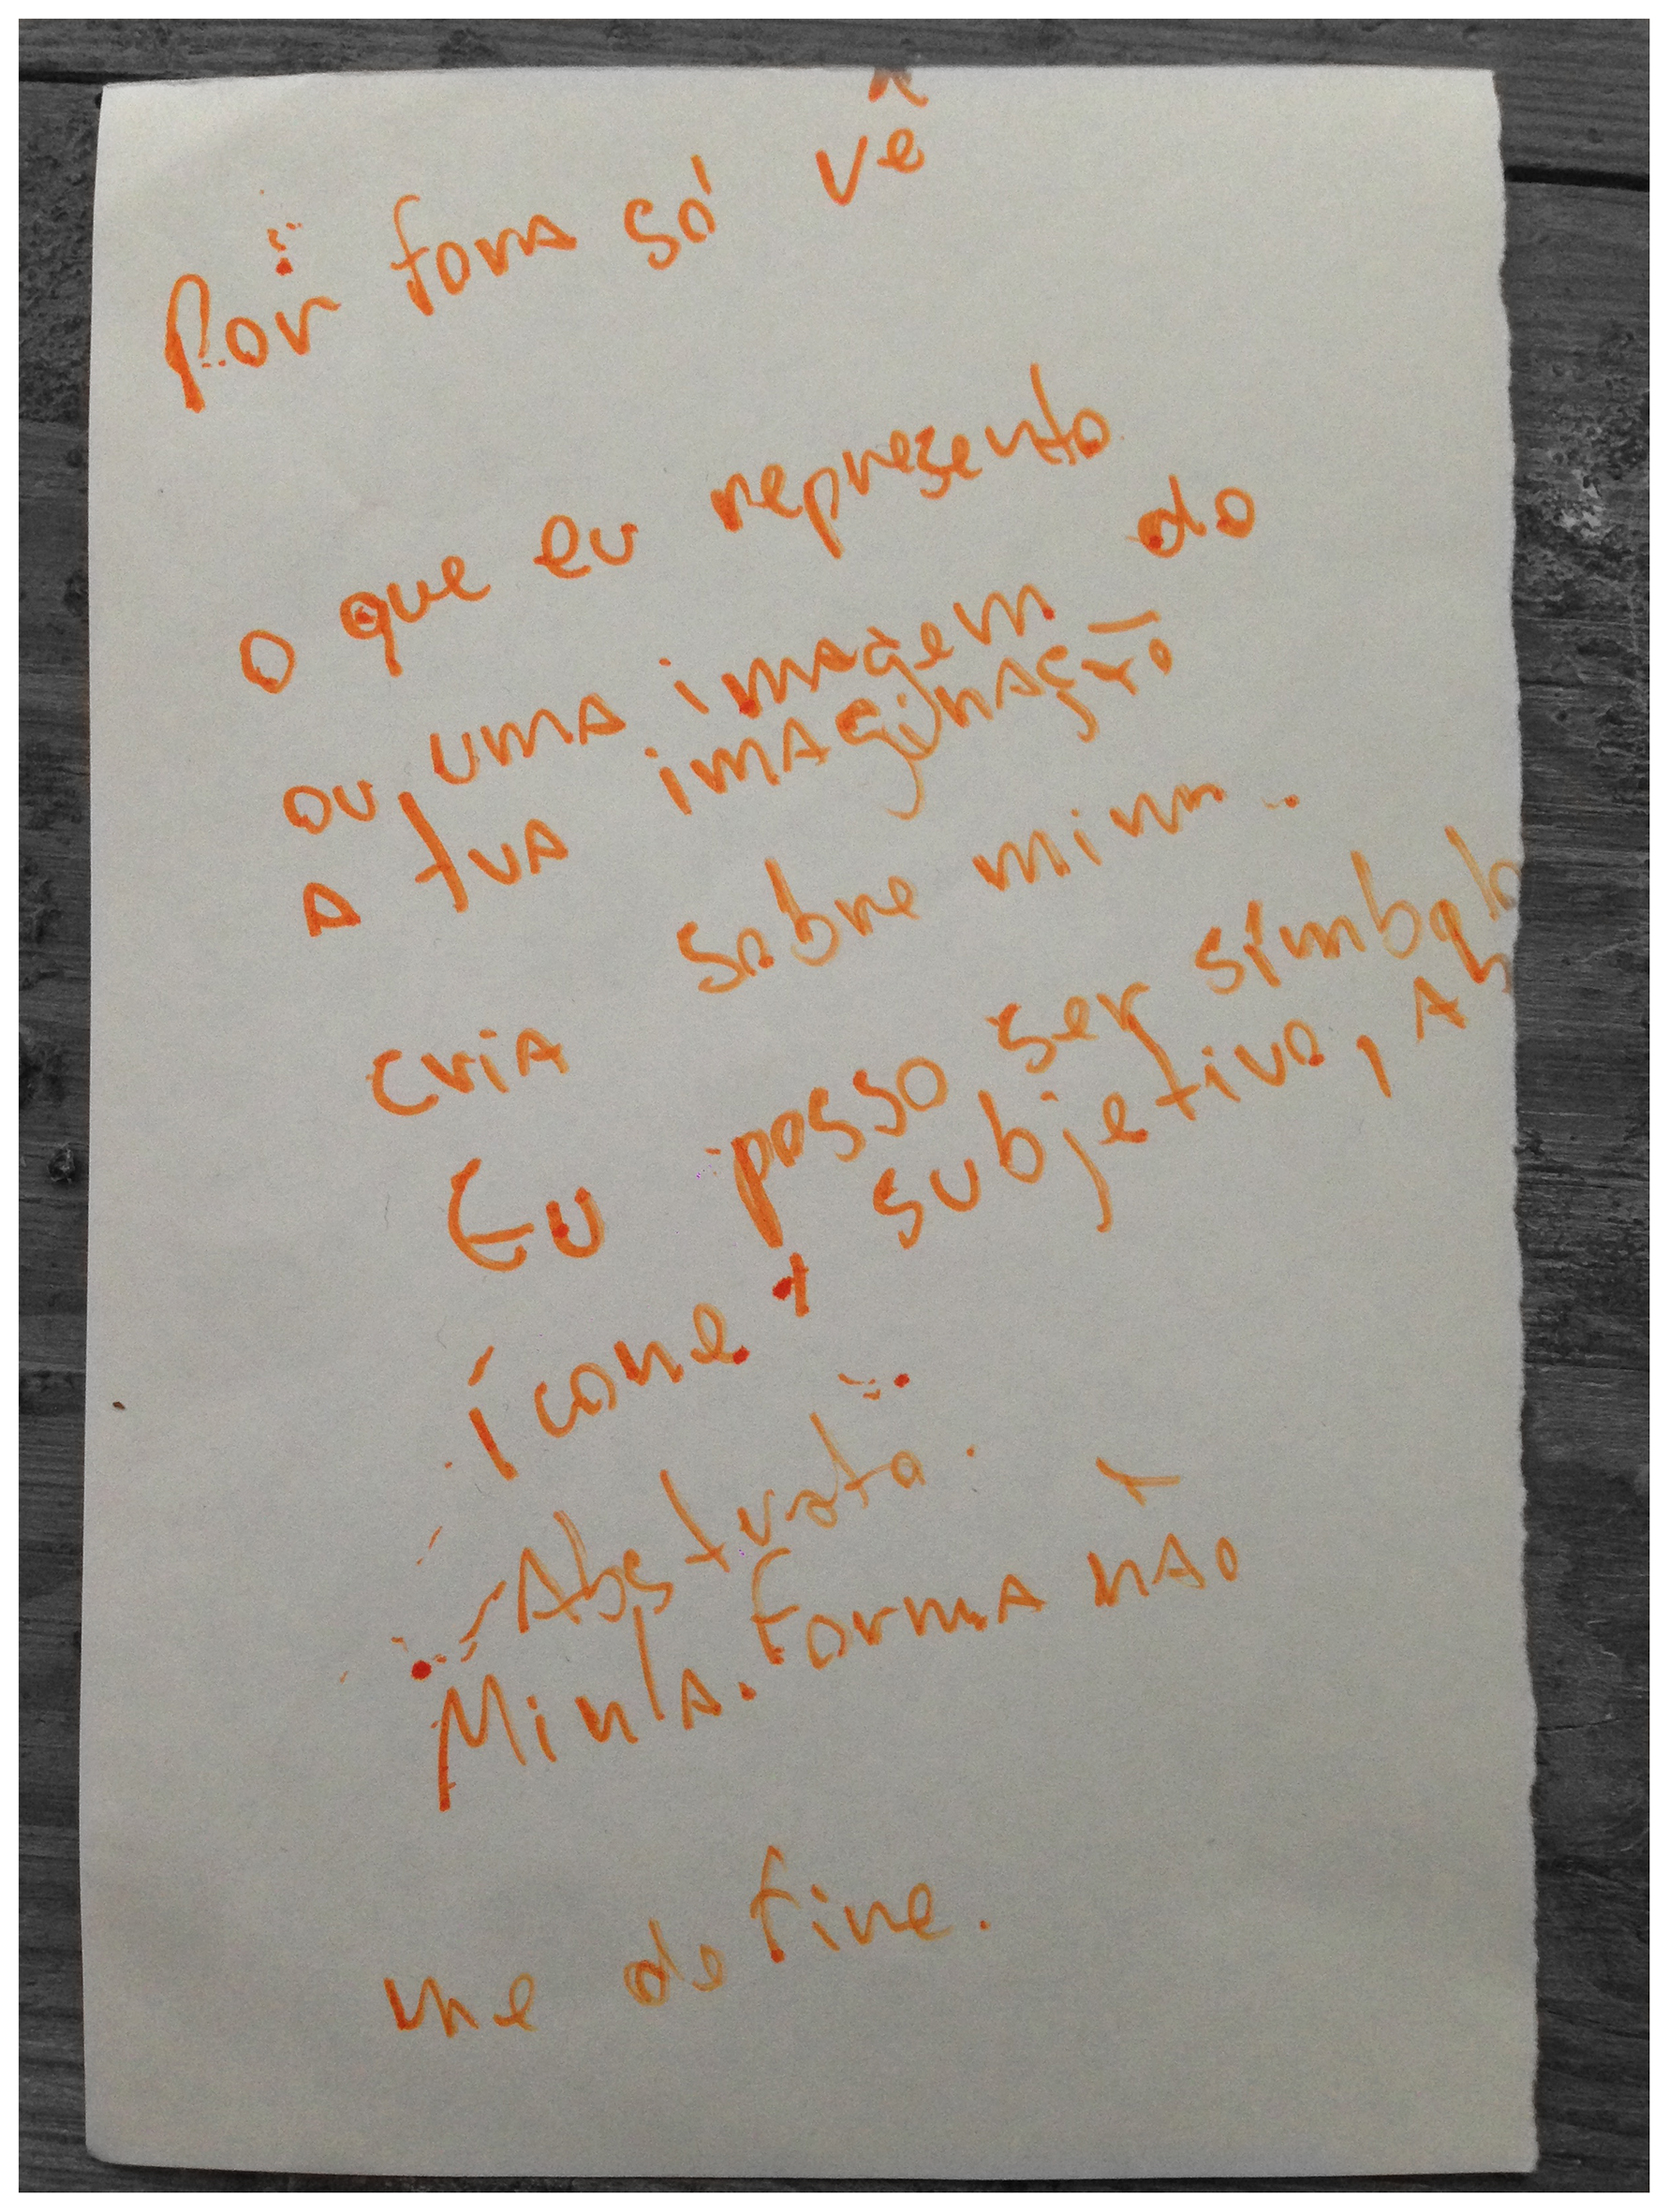 Por fora só vê
o que eu represento
ou uma imagem do
a tua imaginação
cria sobre mim..
Eu posso ser símbolo
ícone + subjetivo, Ab
Abstrata.
Minha forma não
me define.